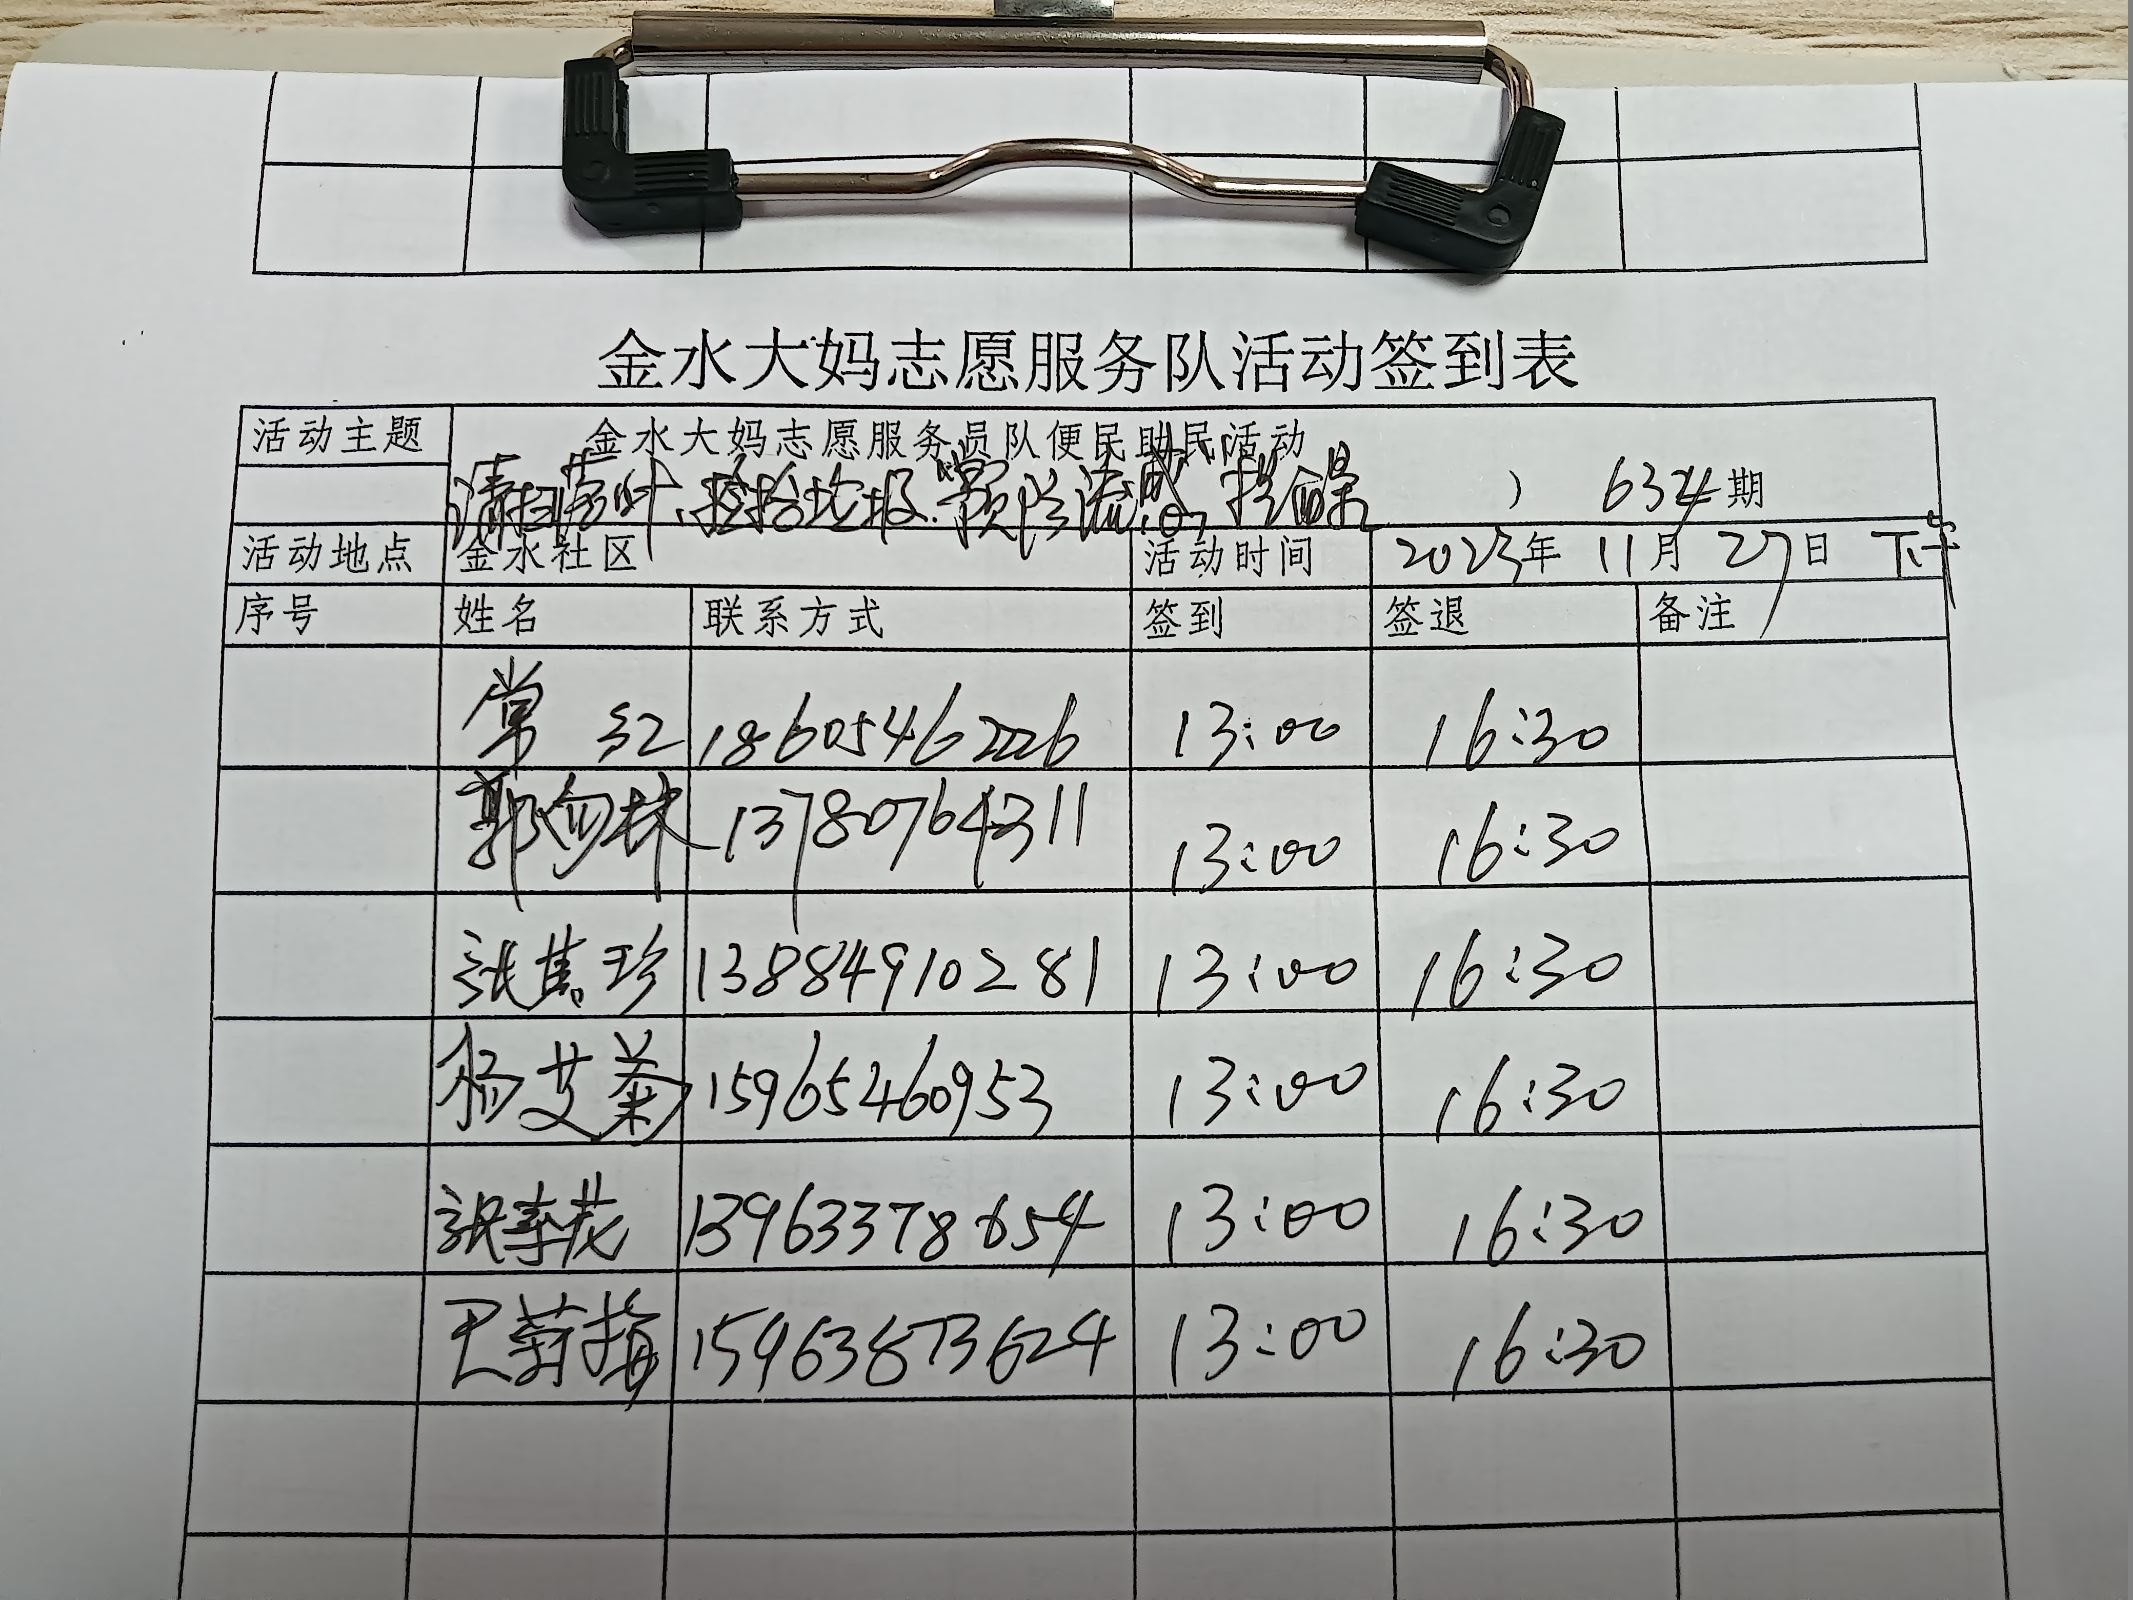 金水大妈志愿服务队活动签到表
活动主题 金水大妈志愿服务员队便民助民活动
请扫落叶、捡拾垃圾.预防流感, ) 634期
活动地点 金水社区 活动时间 2023年 11月 27日 下午
序号 姓名 联系方式 签到 签退 备注
常红 18605462226 13:00 16:30
郭勿林 13780764311 13:00 16:30
张焦珍 13884910281 13:00 16:30
杨艾菊 15965460953 13:00 16:30
张李花 13963378654 13:00 16:30
巴莉梅 15963873624 13:00 16:30